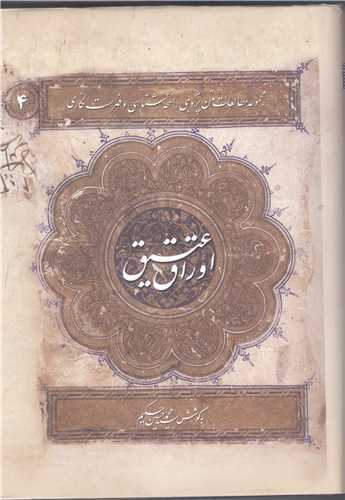 مجموعه مطالعات متن پژوهی، نسخه شناسی و فهرست نگاری
۴
اوراق عتیق
به کوشش سید محمد حسین حکیم